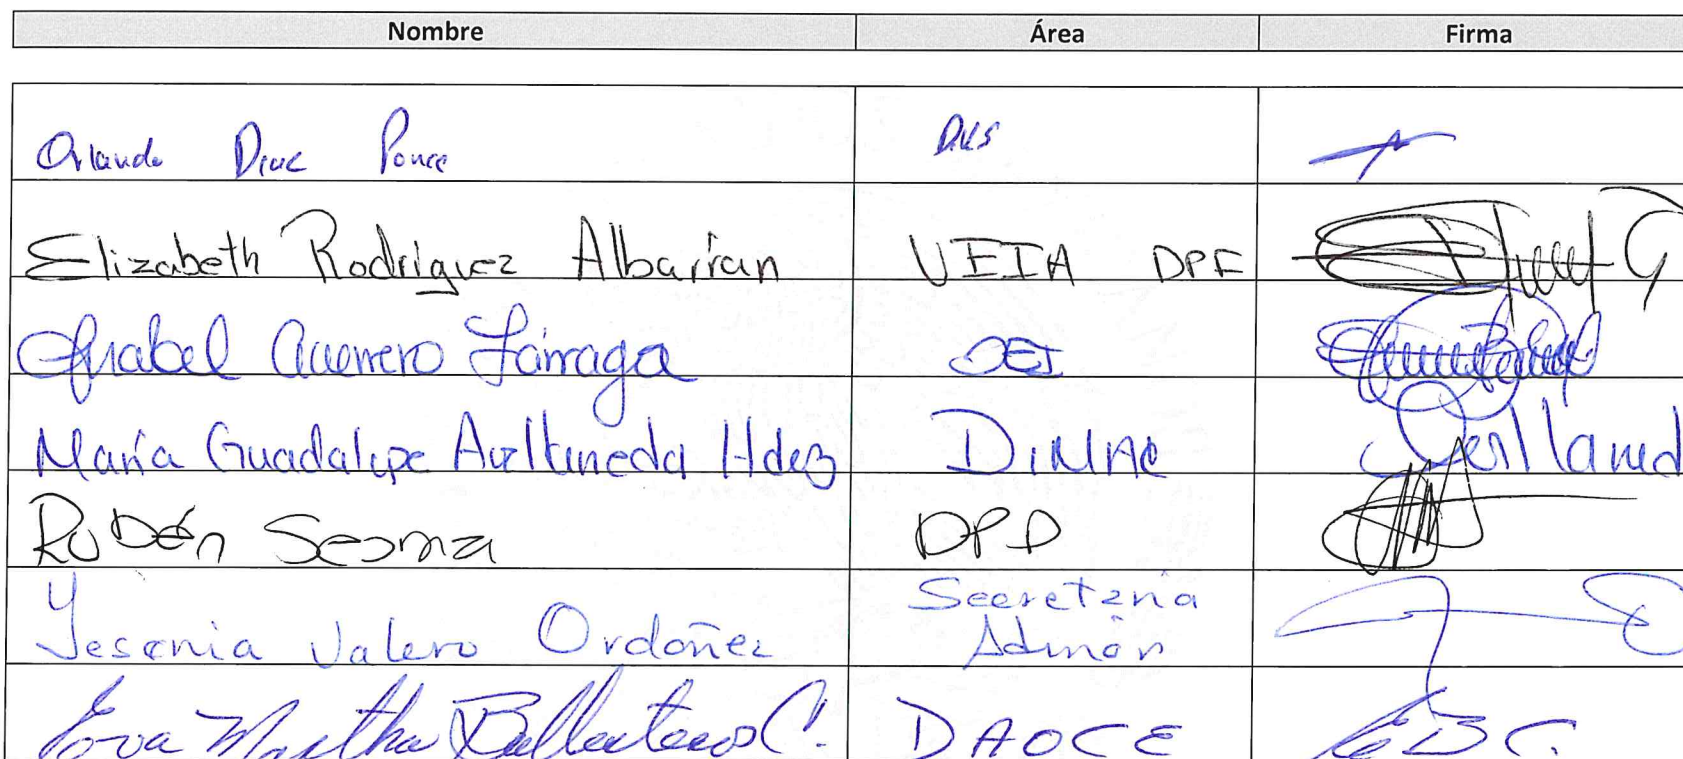 Nombre Área Firma
Orlando Ponce
Elizabeth Rodriguez Albarran UEIA DPE
Anabel Guerrero Járraga OEI
María Guadalupe Avellaneda Hdez DIMAC
Rubén Sesma DPD
Yesenia Valero Ordoñez Secretaria
Admón
Eva Martha Ballesteros C. DAOCE EBC.